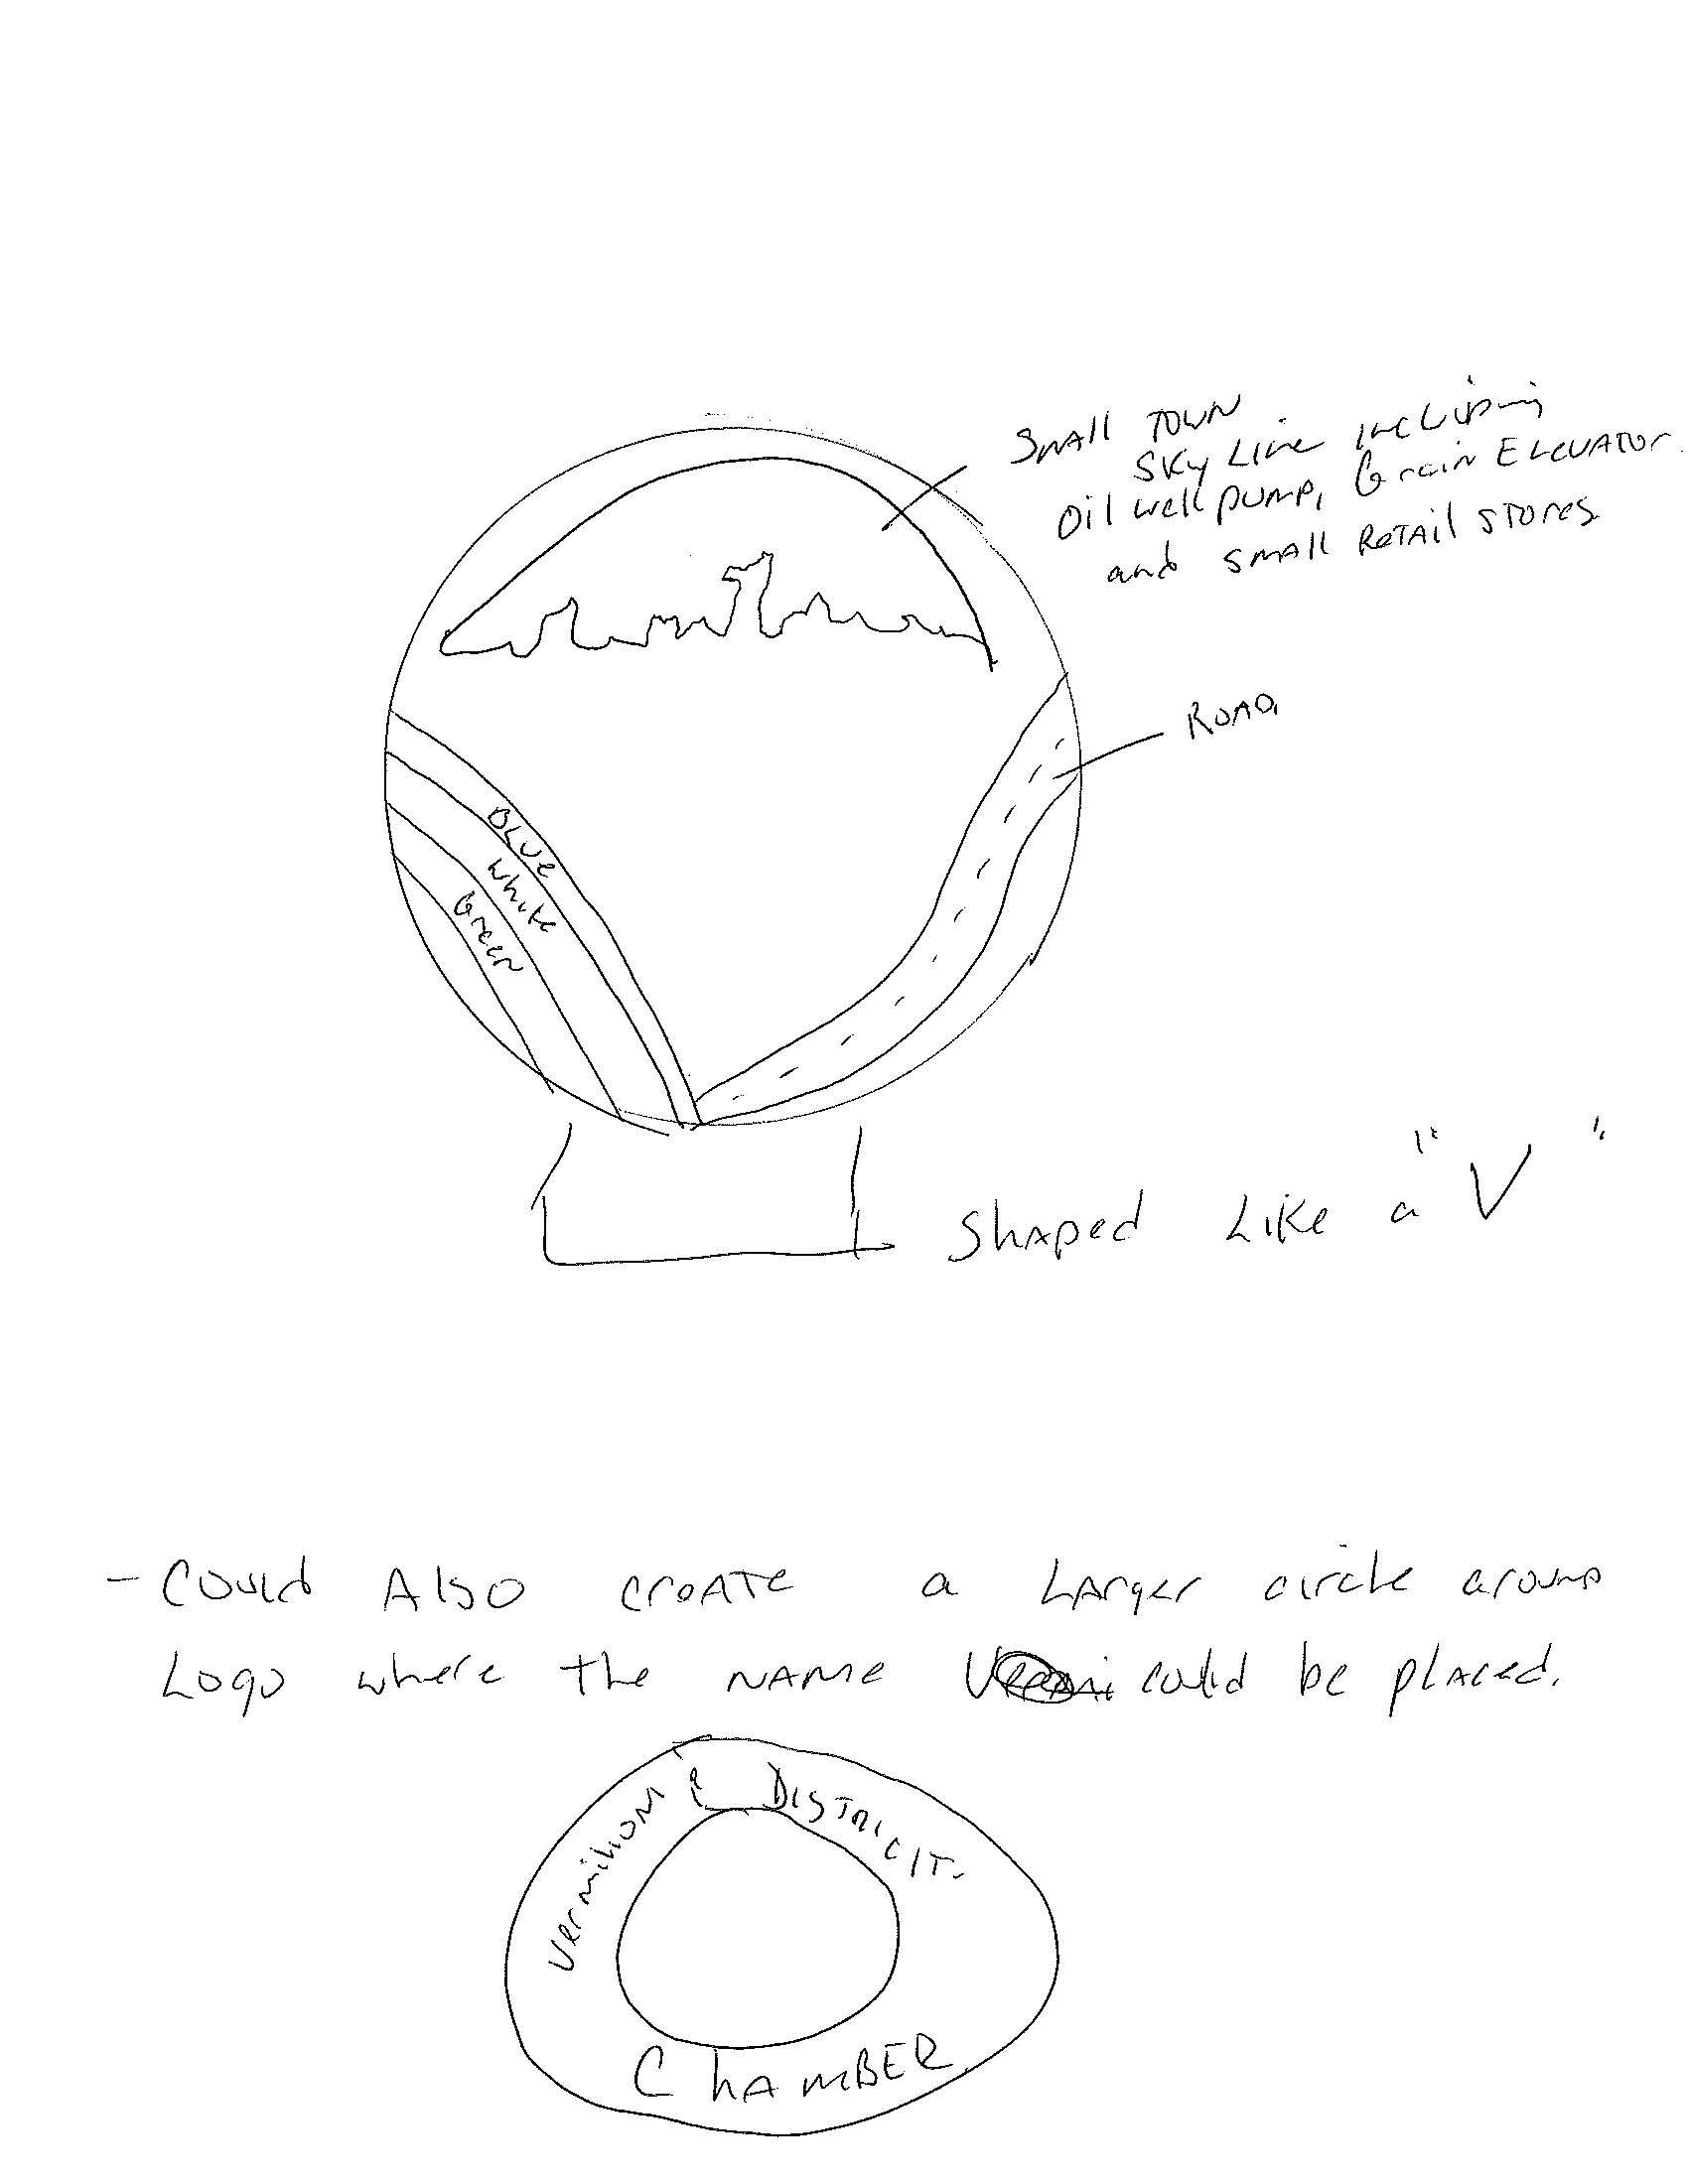 Small Town
Sky Line including
Oil well pump, Grain Elevator
and small Retail stores
Road
Blue
White
Green
Shaped Like a "V"
- Could Also create a Larger circle around
Logo where the name could be placed.
Vermilion & District
Chamber